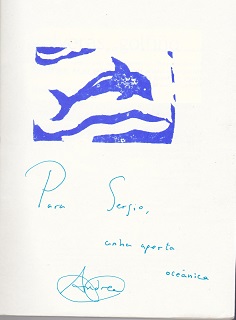 Para Sergio,
unha aperta
oceánica
Andrea